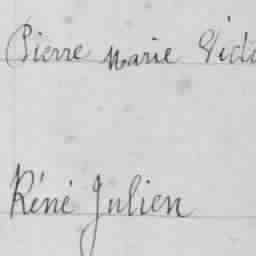 Pierre Marie Victo
Réné Julien